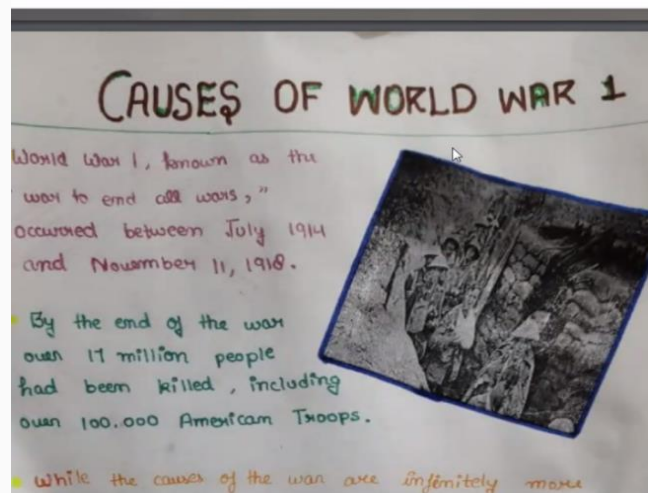 CAUSES OF WORLD WAR 1
World War 1, known as the
war to end all wars,"
occurred between July 1914
and November 11, 1918.
By the end of the war
over 17 million people
had been killed, including
over 100.000 American Troops.
While the causes of the war are infinitely more